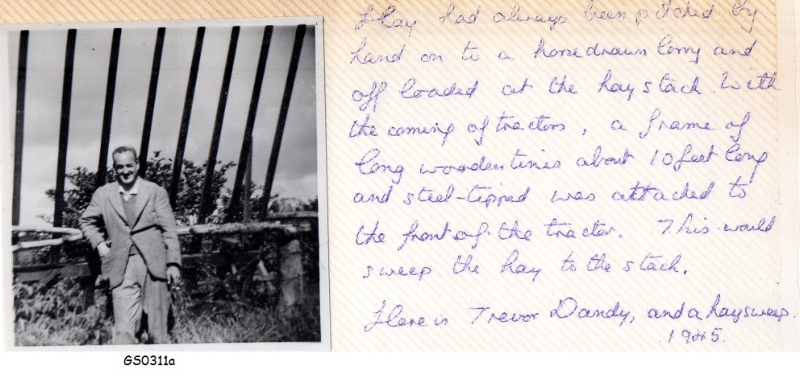 Hay had always been pitched by
hand on to a horsedrawn lorry and
off loaded at the haystack. With
the coming of tractors, a frame of
long wooden tines about 10 feet long
and steel-tipped was attached to
the front of the tractor. This would
sweep the hay to the stack.
Here is Trevor Dandy, and a haysweep.
1945.
GS0311a